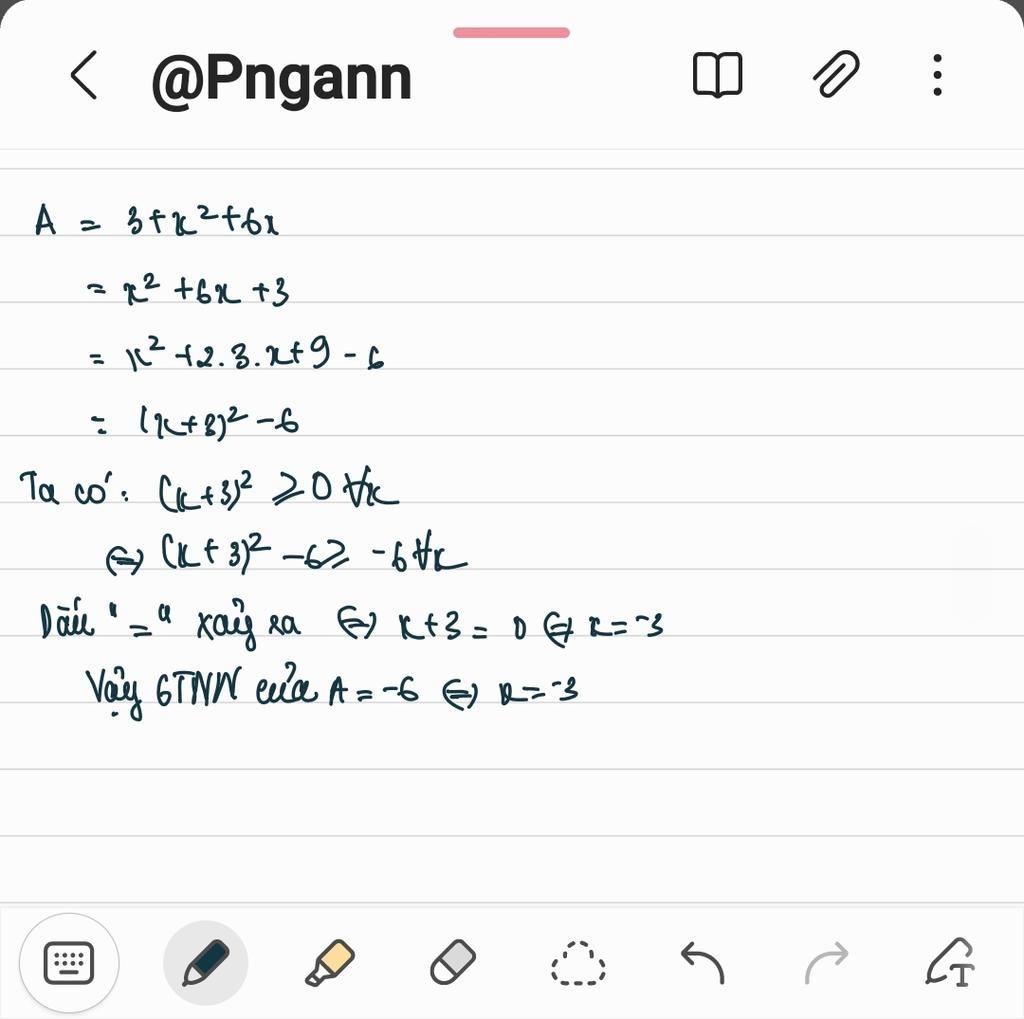 @Pngann
A = 3+x²+6x
= x² +6x +3
= x² +2.3.x+9 - 6
= (x+3)² -6
Ta có: (x+3)² ⩾0 ∀x
⇔ (x+3)² -6⩾ -6 ∀x
Dấu "=" xảy ra ⇔ x+3 = 0 ⇔ x=-3
Vậy GTNN của A = -6 ⇔ x=-3
T